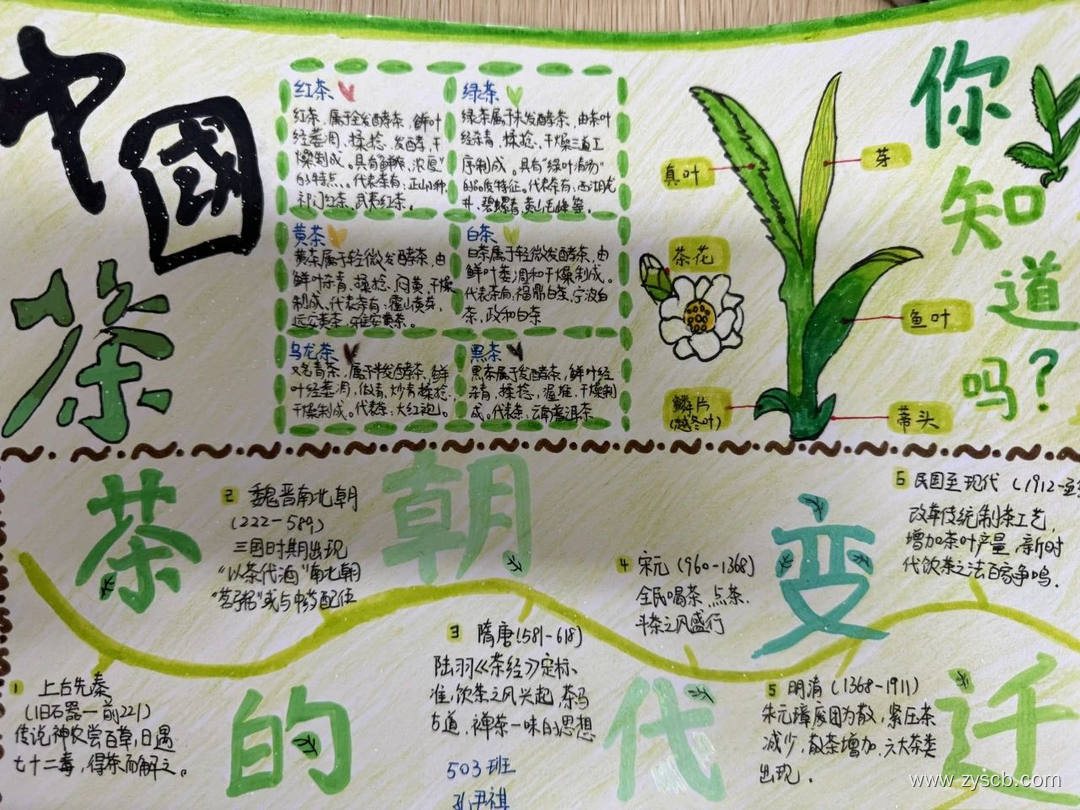 中國
茶
红茶
红茶，属于全发酵茶，鲜叶
经萎凋、揉捻、发酵、干
燥制成。具有
的特点。代表茶有：正山小种
祁门红茶、武夷红茶。
绿茶
绿茶属于未发酵茶，由茶叶
经杀青、揉捻、干燥三道工
序制成。具有"绿叶清汤"
的品质特征。代表茶有：西湖龙
井、碧螺春、黄山毛峰等。
黄茶
黄茶属于轻微发酵茶，由
鲜叶杀青、揉捻、闷黄、干燥
制成，代表茶有：霍山黄芽、
远安黄茶、黄茶。
白茶
白茶属于轻微发酵茶，由
鲜叶萎凋和干燥制成。
代表茶有：福鼎白茶、宁波白
茶、政和白茶
乌龙茶
又名青茶，属于半发酵茶，鲜
叶经萎凋，做青，炒青揉捻，
干燥制成。代表茶：大红袍。
黑茶
黑茶属于发酵茶，鲜叶经
杀青，揉捻，渥堆，干燥制
成。代表茶：云南普洱茶
真叶
芽
茶花
鱼叶
鳞片
(越冬叶)
蒂头
你
知
道
吗？
茶
的
朝
代
变
迁
1 上古先秦
(旧石器—前221)
传说神农尝百草，日遇
七十二毒，得茶而解之。
2 魏晋南北朝
(222-589)
三国时期出现
"以茶代酒"南北朝
"茗粥"或与中药配伍
3 隋唐(581-618)
陆羽《茶经》定标
准，饮茶之风兴起，茶马
古道，禅茶一味的思想
503班
4 宋元(960-1368)
全民喝茶，点茶，
斗茶之风盛行
5 明清(1368-1911)
朱元璋废团为散，紧压茶
减少，散茶增加，六大茶类
出现。
6 民国至现代(1912-至
改革传统制茶工艺，
增加茶叶产量，新时
代饮茶之法百家争鸣。
www.zyscb.com